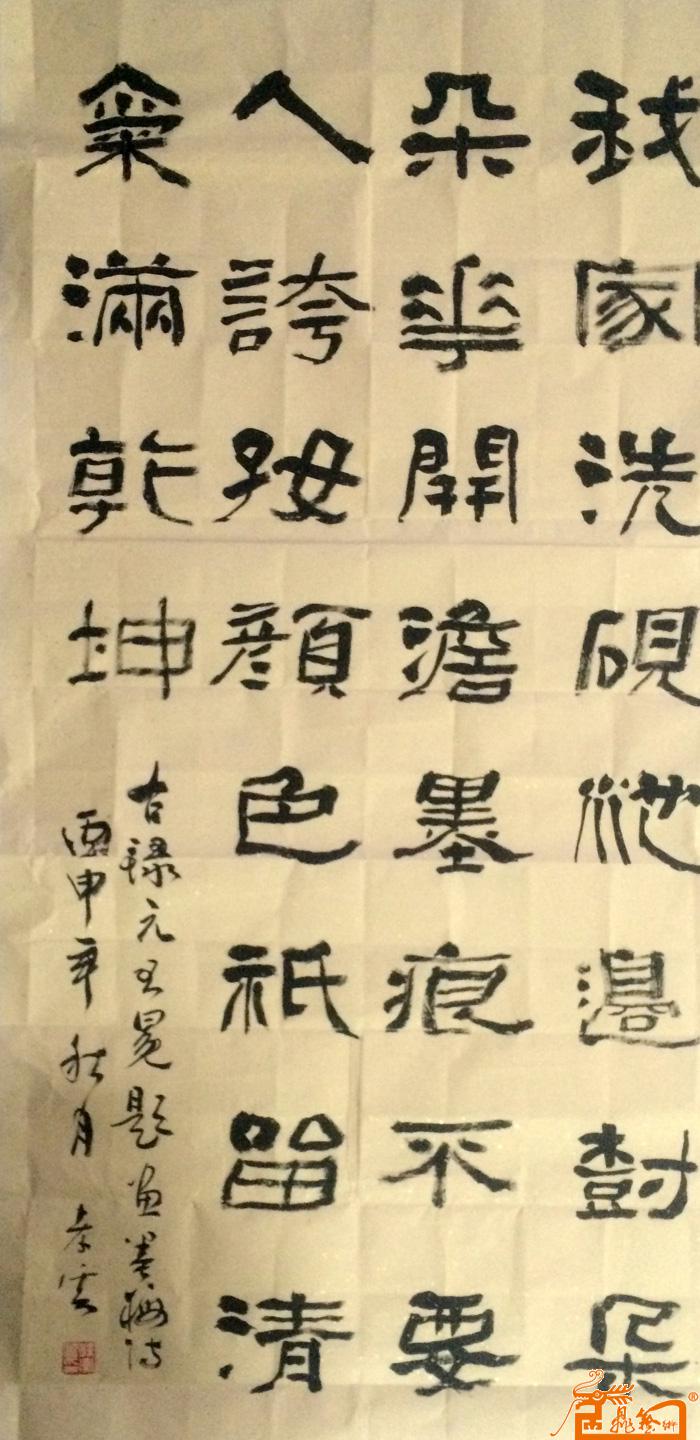 我家洗硯池邊樹朵
朵華開澹墨痕不要
人誇好顏色祇留清
氣滿乾坤
右録元王冕題畫墨梅诗
丙申年秋月